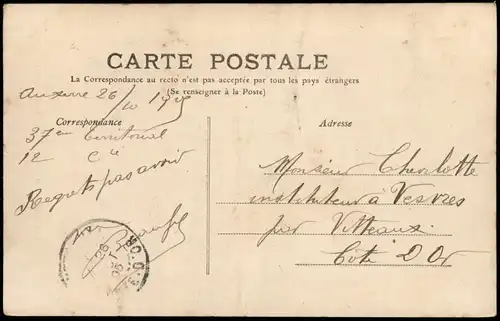 CARTE POSTALE
La Correspondance au recto n'est pas acceptée par tous les pays étrangers
(Se renseigner à la Poste)
Auxerre 26/10 1905
Correspondance
Adresse
37em Territorial
12 Cie
Regrets pas avoir
Monsieur Cherlotte
instituteur à Vesvres
par Vitteaux
Côte D'Or